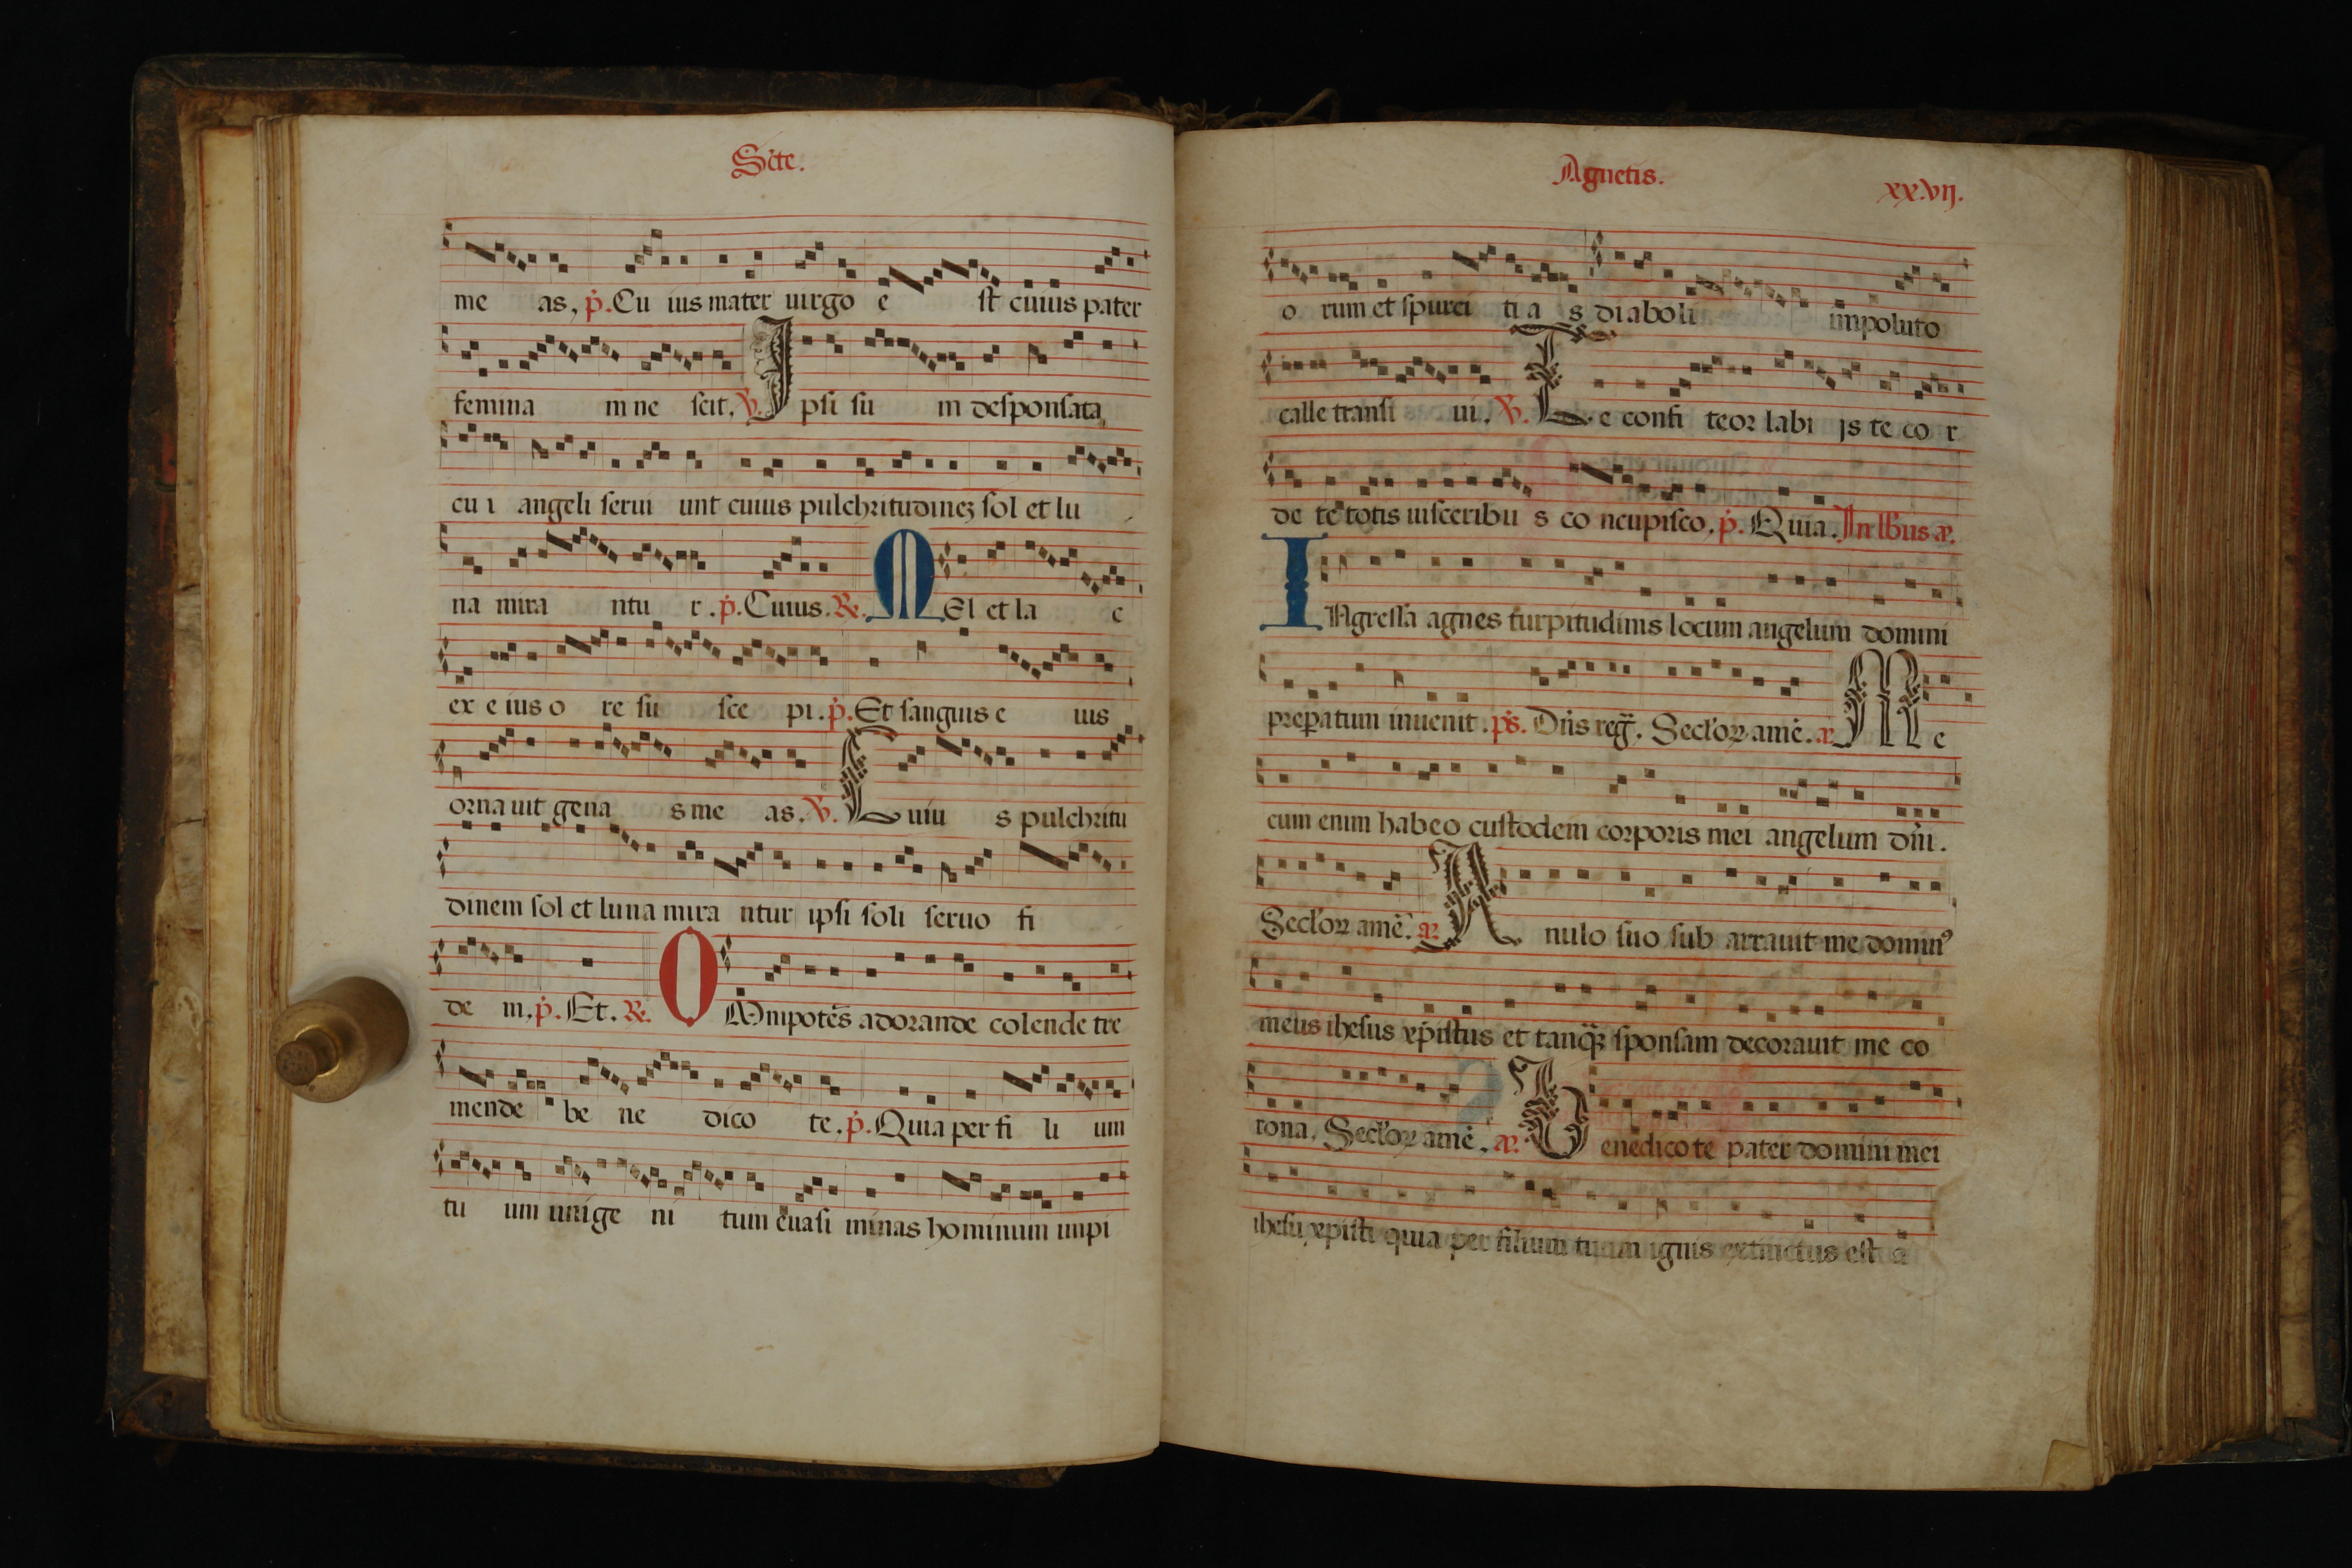 Scte.
me as, p. Cu ius mater uirgo e st cuius pater
femina m ne scit. V. I psi su m desponsata
cu i angeli serui unt cuius pulchritudinez sol et lu
na mira ntu r. p. Cuius. R. M El et la c
ex e ius o re su sce pi. p. Et sanguis e ius
orna uit gena s me as. V. C uiu s pulchritu
dinem sol et luna mira ntur ipsi soli seruo fi
de m. p. Et. R. O Mnipotēs adorande colende tre
mende be ne dico te. p. Quia per fi li um
tu um unige ni tum euasi minas hominum impi
Agnetis. xx.vij.
o rum et spurci ti a s diaboli impoluto
calle transi ui. V. T e confi teor labi js te co r
de te totis uisceribu s co ncupisco. p. Quia. In lBus a.
I Ngressa agnes turpitudinis locum angelum domini
preparatum inuenit. ps. Dns reg. Seclor amē. a M e
cum enim habeo custodem corporis mei angelum dñi.
Seclor amē. a A nulo suo sub arrauit me dominꝰ
meus ihesus xpistus et tanqꝫ sponsam decorauit me co
rona. Seclor amē. a. B enedico te pater domini mei
ihesu xpisti quia per filium tuum ignis extinctus est a